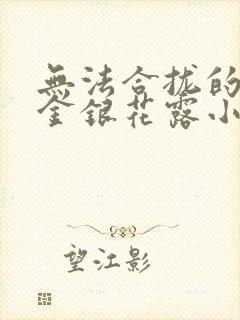 無法合拢的
金銀花露小
望江影